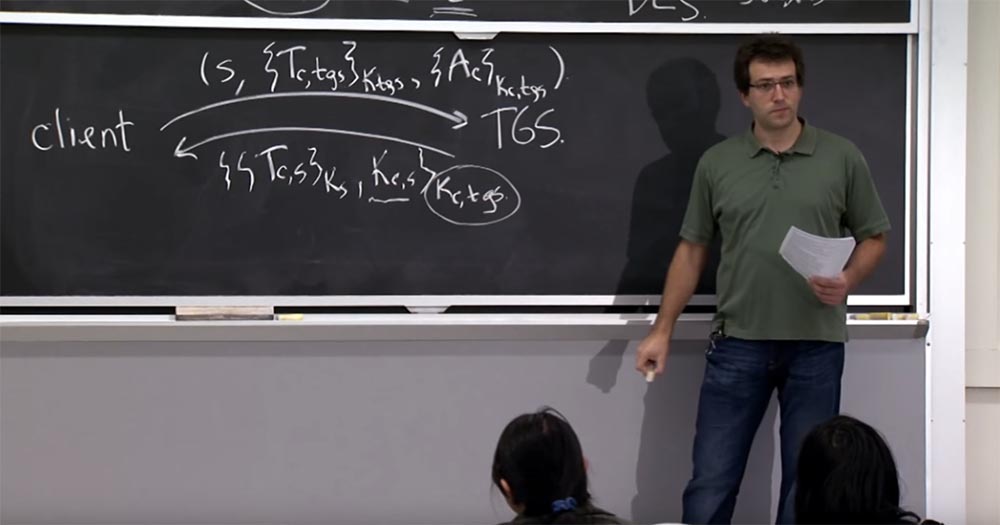 DES.
(s, {Tc,tgs}Ktgs, {Ac}Kc,tgs)
client
TGS.
{{Tc,s}Ks, Kc,s}Kc,tgs